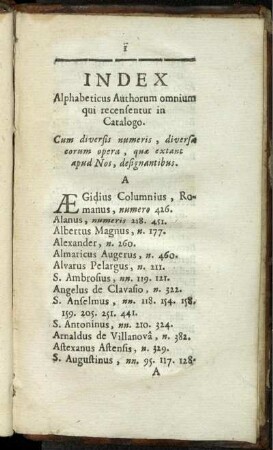 ï
INDEX
Alphabeticus Authorum omnium
qui recensentur in
Catalogo.
Cum diversis numeris, diversa
eorum opera, quæ extant
apud Nos, designantibus.
A
ÆGidius Columnius, Ro-
manus, numero 426.
Alanus, numeris 218. 451.
Albertus Magnus, n. 177.
Alexander, n. 260.
Almaricus Augerus, n. 460.
Alvarus Pelargus, n. 211.
S. Ambrosius, nn. 119. 121.
Angelus de Clavasio, n. 322.
S. Anselmus, nn. 118. 154. 158.
159. 205. 251. 441.
S. Antoninus, nn. 210. 324.
Arnaldus de Villanovâ, n. 382.
Astexanus Astensis, n. 329.
S. Augustinus, nn. 95. 117. 128.
A